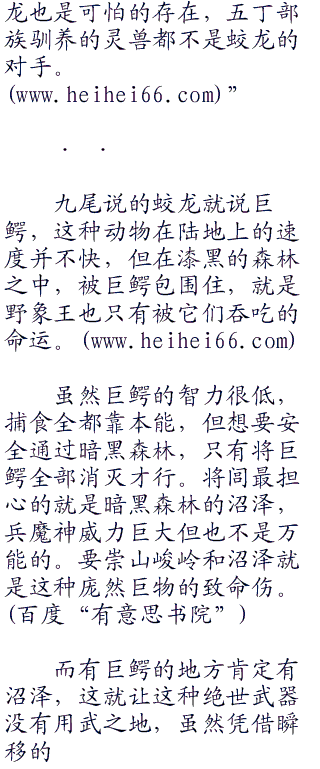 龙也是可怕的存在，五丁部
族驯养的灵兽都不是蛟龙的
对手。
(www.heihei66.com)”
． ．
九尾说的蛟龙就说巨
鳄，这种动物在陆地上的速
度并不快，但在漆黑的森林
之中，被巨鳄包围住，就是
野象王也只有被它们吞吃的
命运。(www.heihei66.com)
虽然巨鳄的智力很低，
捕食全都靠本能，但想要安
全通过暗黑森林，只有将巨
鳄全部消灭才行。将闾最担
心的就是暗黑森林的沼泽，
兵魔神威力巨大但也不是万
能的。要崇山峻岭和沼泽就
是这种庞然巨物的致命伤。
(百度“有意思书院”)
而有巨鳄的地方肯定有
沼泽，这就让这种绝世武器
没有用武之地，虽然凭借瞬
移的